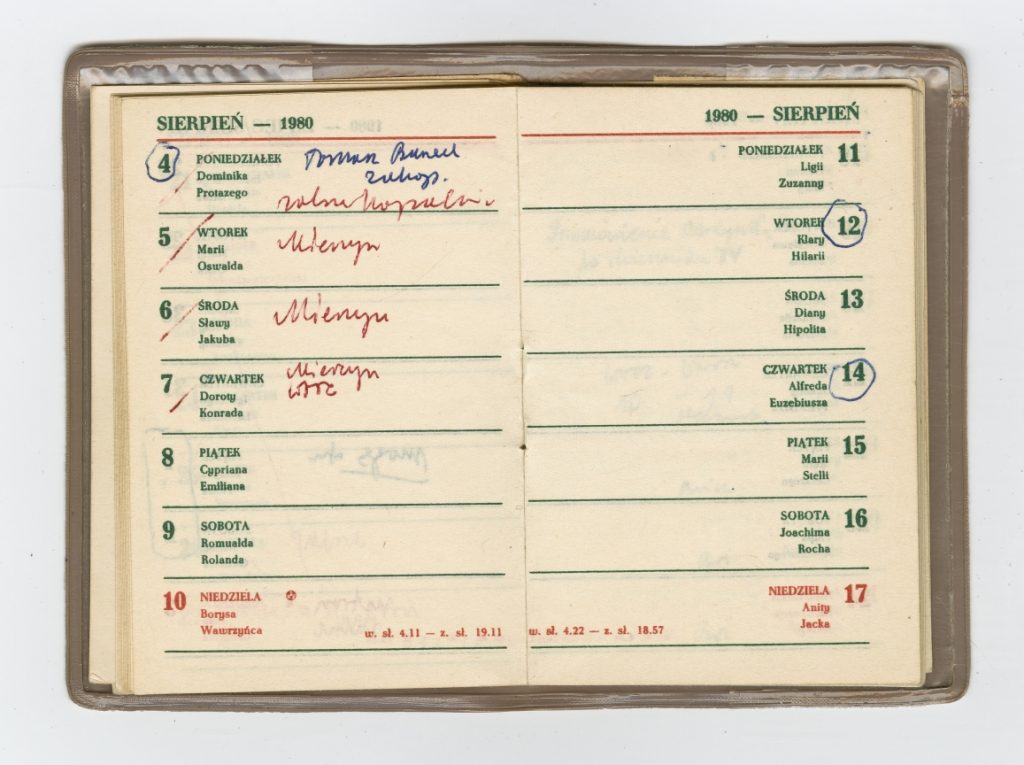 SIERPIEŃ — 1980
4 PONIEDZIAŁEK
Dominika
Protazego
5 WTOREK
Marii
Oswalda
Mierzyn
6 ŚRODA
Sławy
Jakuba
Mierzyn
7 CZWARTEK
Doroty
Konrada
Mierzyn
8 PIĄTEK
Cypriana
Emiliana
9 SOBOTA
Romualda
Rolanda
10 NIEDZIELA
Borysa
Wawrzyńca
w. sł. 4.11 — z. sł. 19.11
1980 — SIERPIEŃ
PONIEDZIAŁEK 11
Ligii
Zuzanny
WTOREK 12
Klary
Hilarii
ŚRODA 13
Diany
Hipolita
CZWARTEK 14
Alfreda
Euzebiusza
PIĄTEK 15
Marii
Stelli
SOBOTA 16
Joachima
Rocha
NIEDZIELA 17
Anity
Jacka
w. sł. 4.22 — z. sł. 18.57